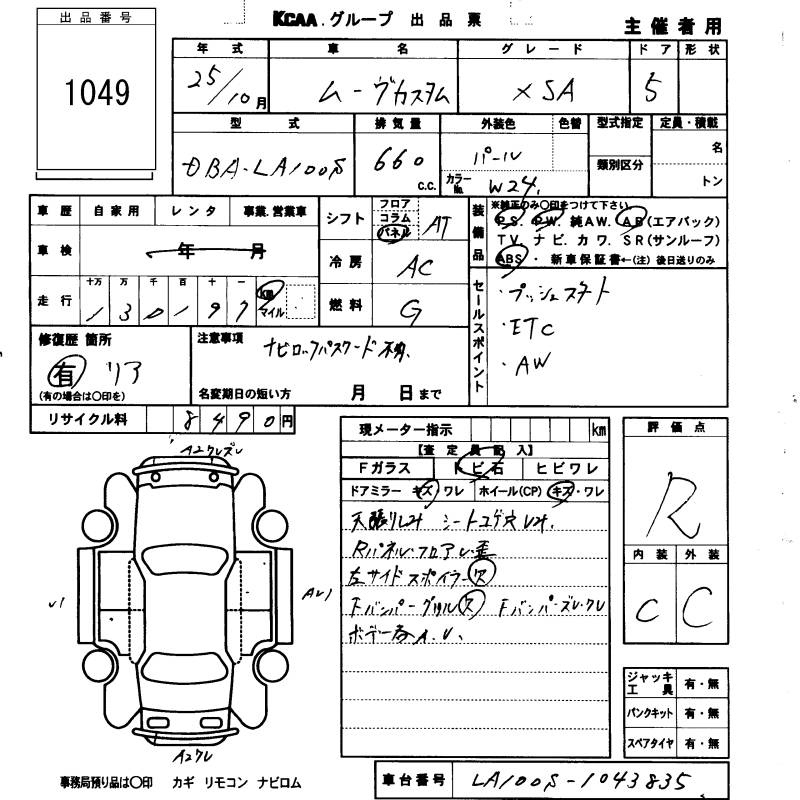 出品番号
1049
KCAA.グループ 出品票
主催者用
年式 車名 グレード ドア 形状
25/10月 ムーヴカスタム XSA 5
型式 排気量 外装色 色替 型式指定 定員・積載
DBA-LA100S 660 c.c. パール 名
類別区分
カラーNo. W24. トン
車歴 自家用 レンタ 事業.営業車
シフト フロア コラム パネル AT
装備品
※純正のみ〇印をつけて下さい。
PS. PW. 純AW. AB(エアバック)
TV. ナビ. カワ. SR(サンルーフ)
ABS・ 新車保証書←(注) 後日送りのみ
車検 年 月
冷房 AC
走行 十万 万 千 百 十 一
/ 3 0 / 9 7 km マイル
燃料 G
セールスポイント
・プッシュスタート
・ETC
・AW
修復歴 箇所
有 リア
(有の場合は〇印を)
注意事項
ナビロックパスワード不明.
名変期日の短い方 月 日まで
リサイクル料 8490円
現メーター指示 km
【査定員記入】
Fガラス トビ石 ヒビワレ
ドアミラー キズ ワレ ホイール(CP) キズ・ワレ
天張りしみ シートコゲ穴 しみ.
Rパネル・フロアレ歪
左サイドスポイラー欠
Fバンパーグリル欠 Fバンパーズレクレ
ボデー各A.U.
評価点
R
内装 外装
C C
A2クレズレ
U1
AU1
A2クレ
ジャッキ 工具 有・無
パンクキット 有・無
スペアタイヤ 有・無
事務局預り品は〇印 カギ リモコン ナビロム
車台番号 LA100S-1043835